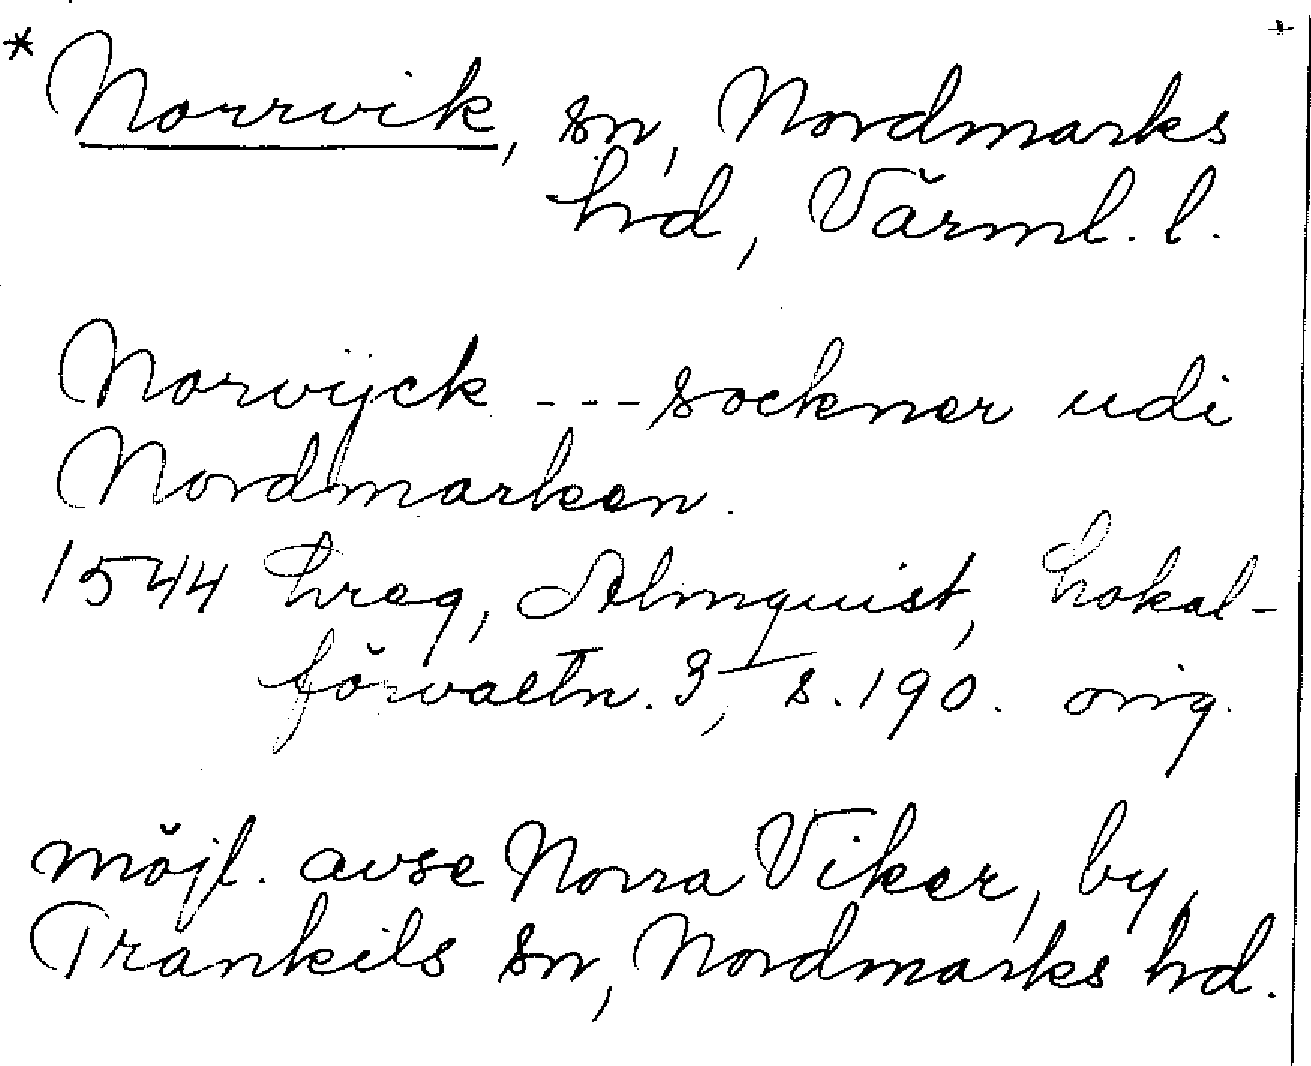 * Norrvik, sn, Nordmarks +
hd, Värml. l.
Norvijck --- sockner udi
Nordmarken.
1544 hreg, Almquist, Lokal-
förvaltn. 3, s. 190. orig.
möjl. avse Norra Viker, by,
Trankils sn, Nordmarks hd.